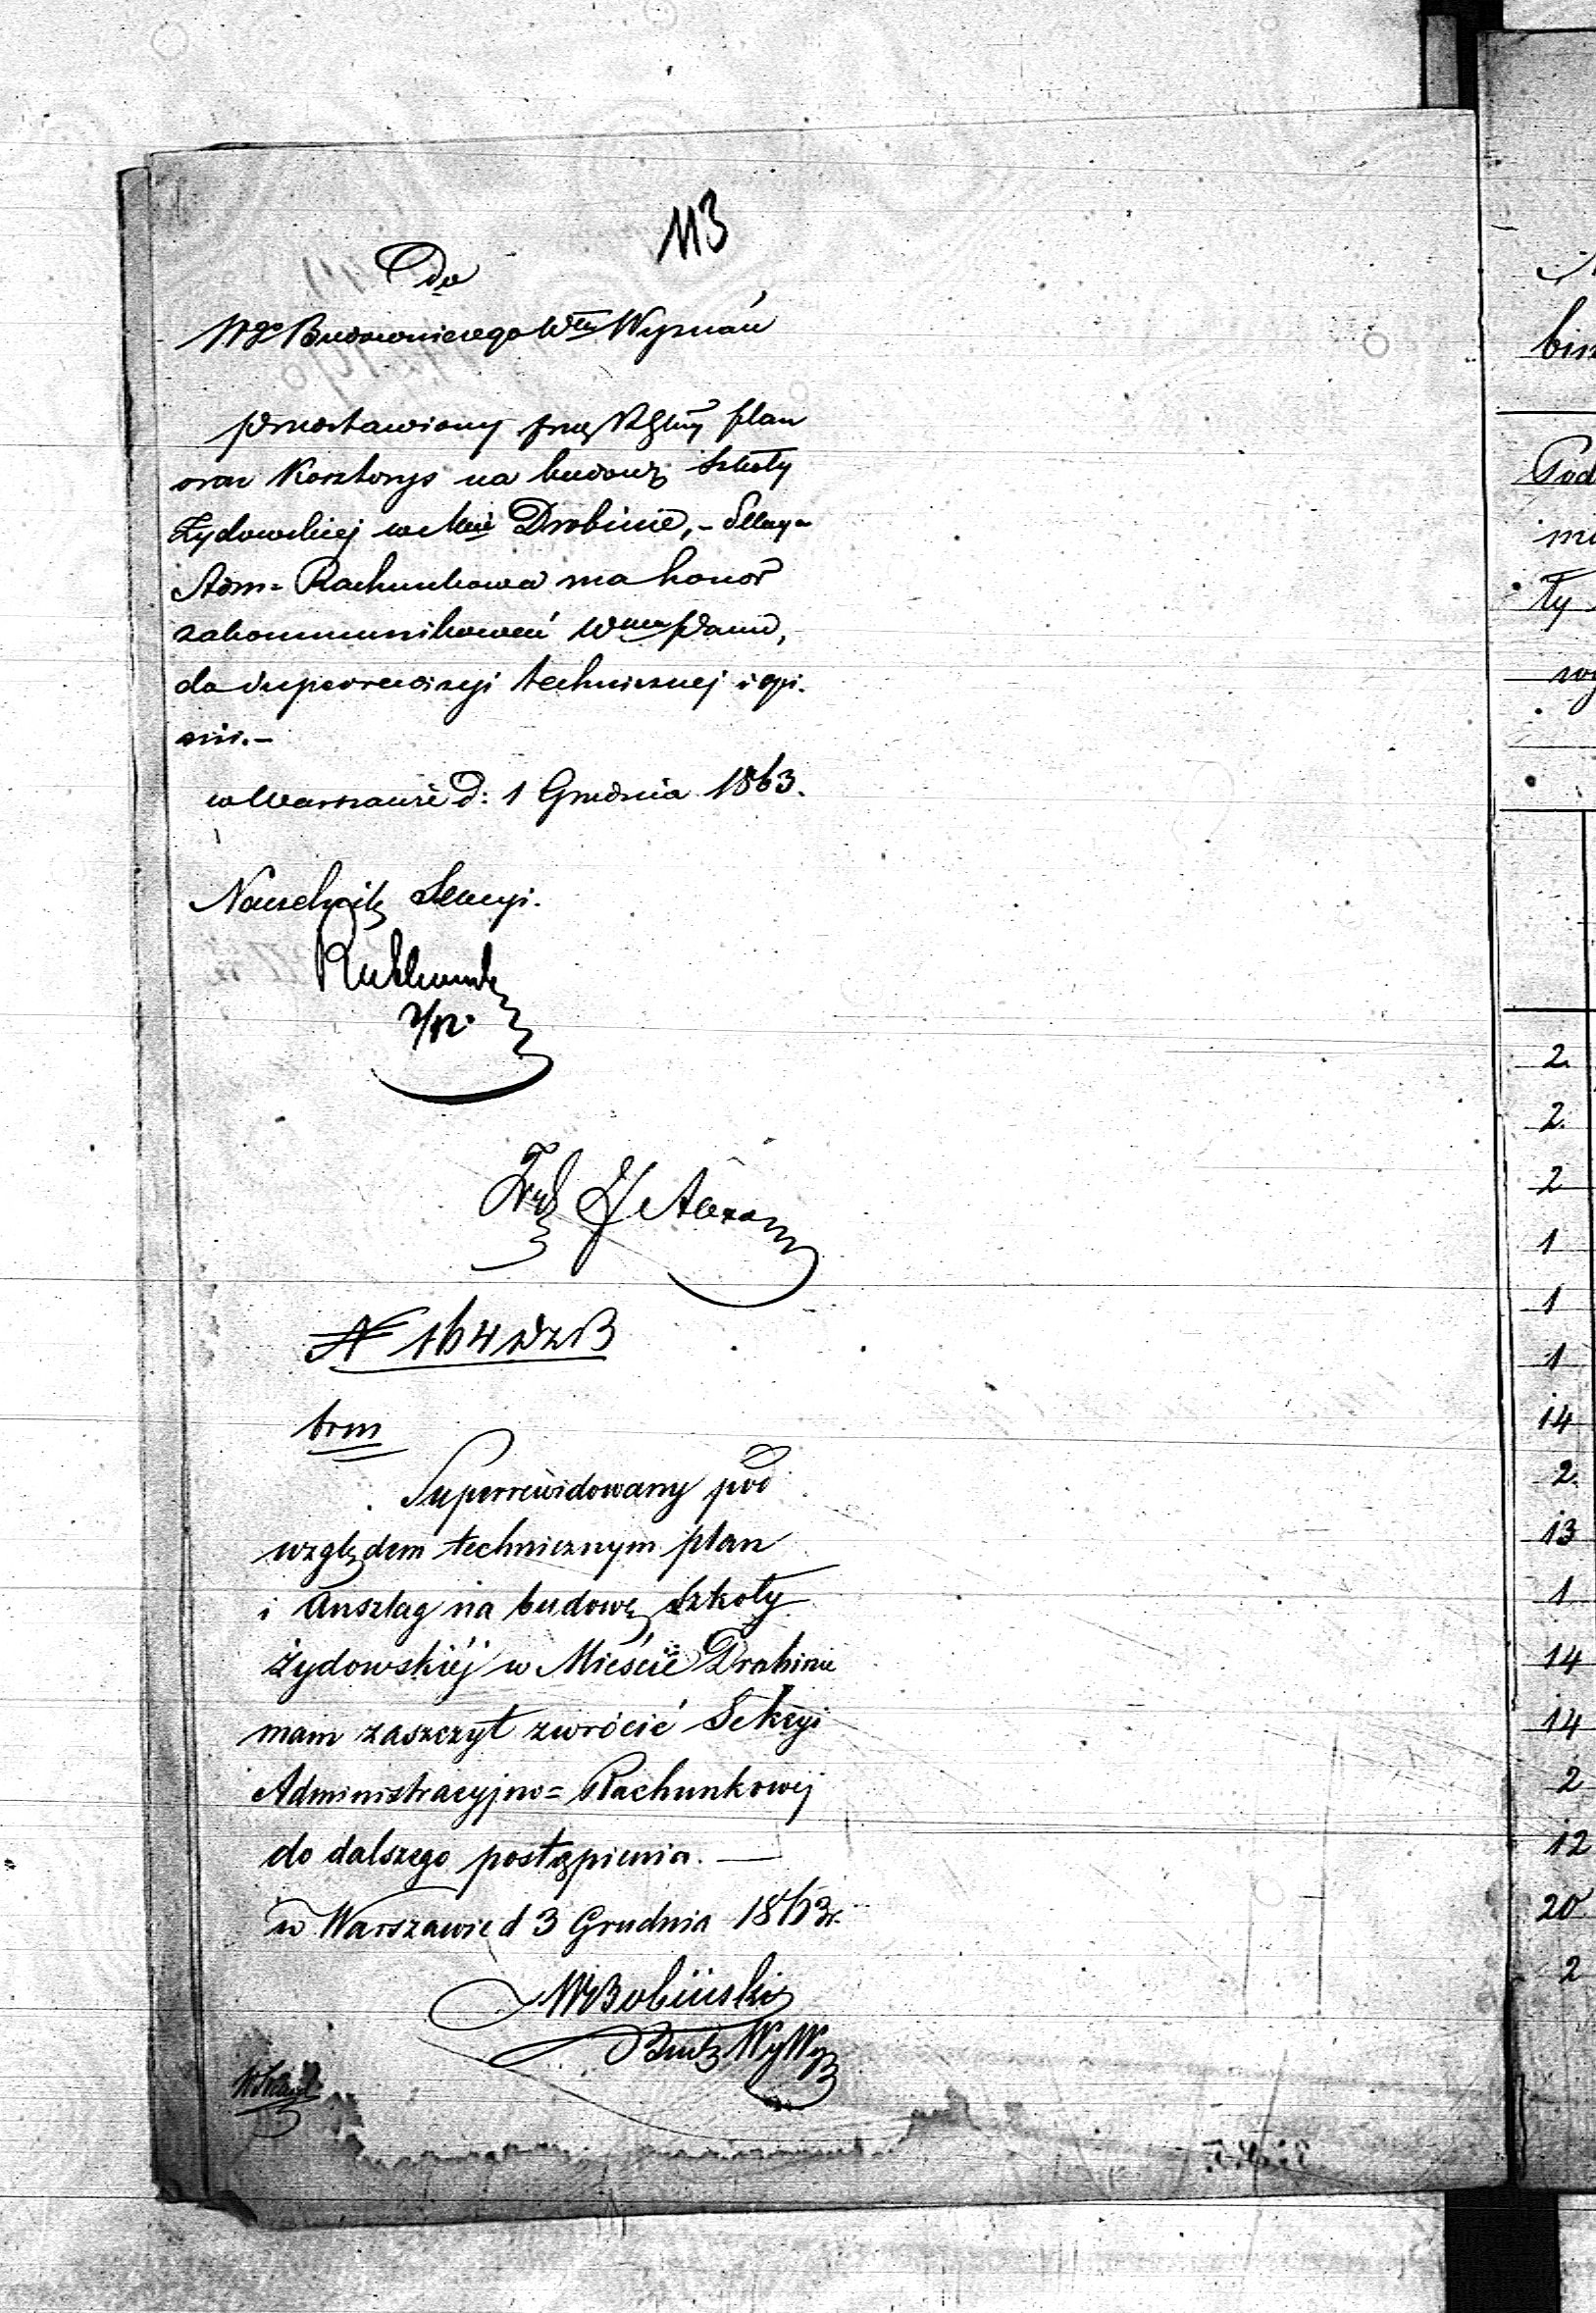 113
Do
Wgo Budowniczego Wku Wyznań
przedstawiony przez Rząd plan
oraz Kosztorys na budowę Szkoły
Żydowskiej w Mcie Drobinie, - Sekcya
Adm= Rachunkowa ma honor
zakommunikować Wmu Panu,
do superrewizyi technicznej i opi-
nii. -
w Warszawie d: 1 Grudnia 1863.
Naczelnik Sekcyi.
2/12.
N 164 WzB
brm
Superrewidowany pod
względem technicznym plan
i Anszlag na budowę Szkoły
żydowskiéj w Mieście Drobinie
mam zaszczyt zwrócić Sekcyi
Administracyjno= Rachunkowej
do dalszego postąpienia. —
w Warszawie d 3 Grudnia 1863r.
WBobiński
Bud WyWyz
bin
Pod
ły
2.
2.
2
1
1
1
14
2.
13
1
14
14
2
12
20
2